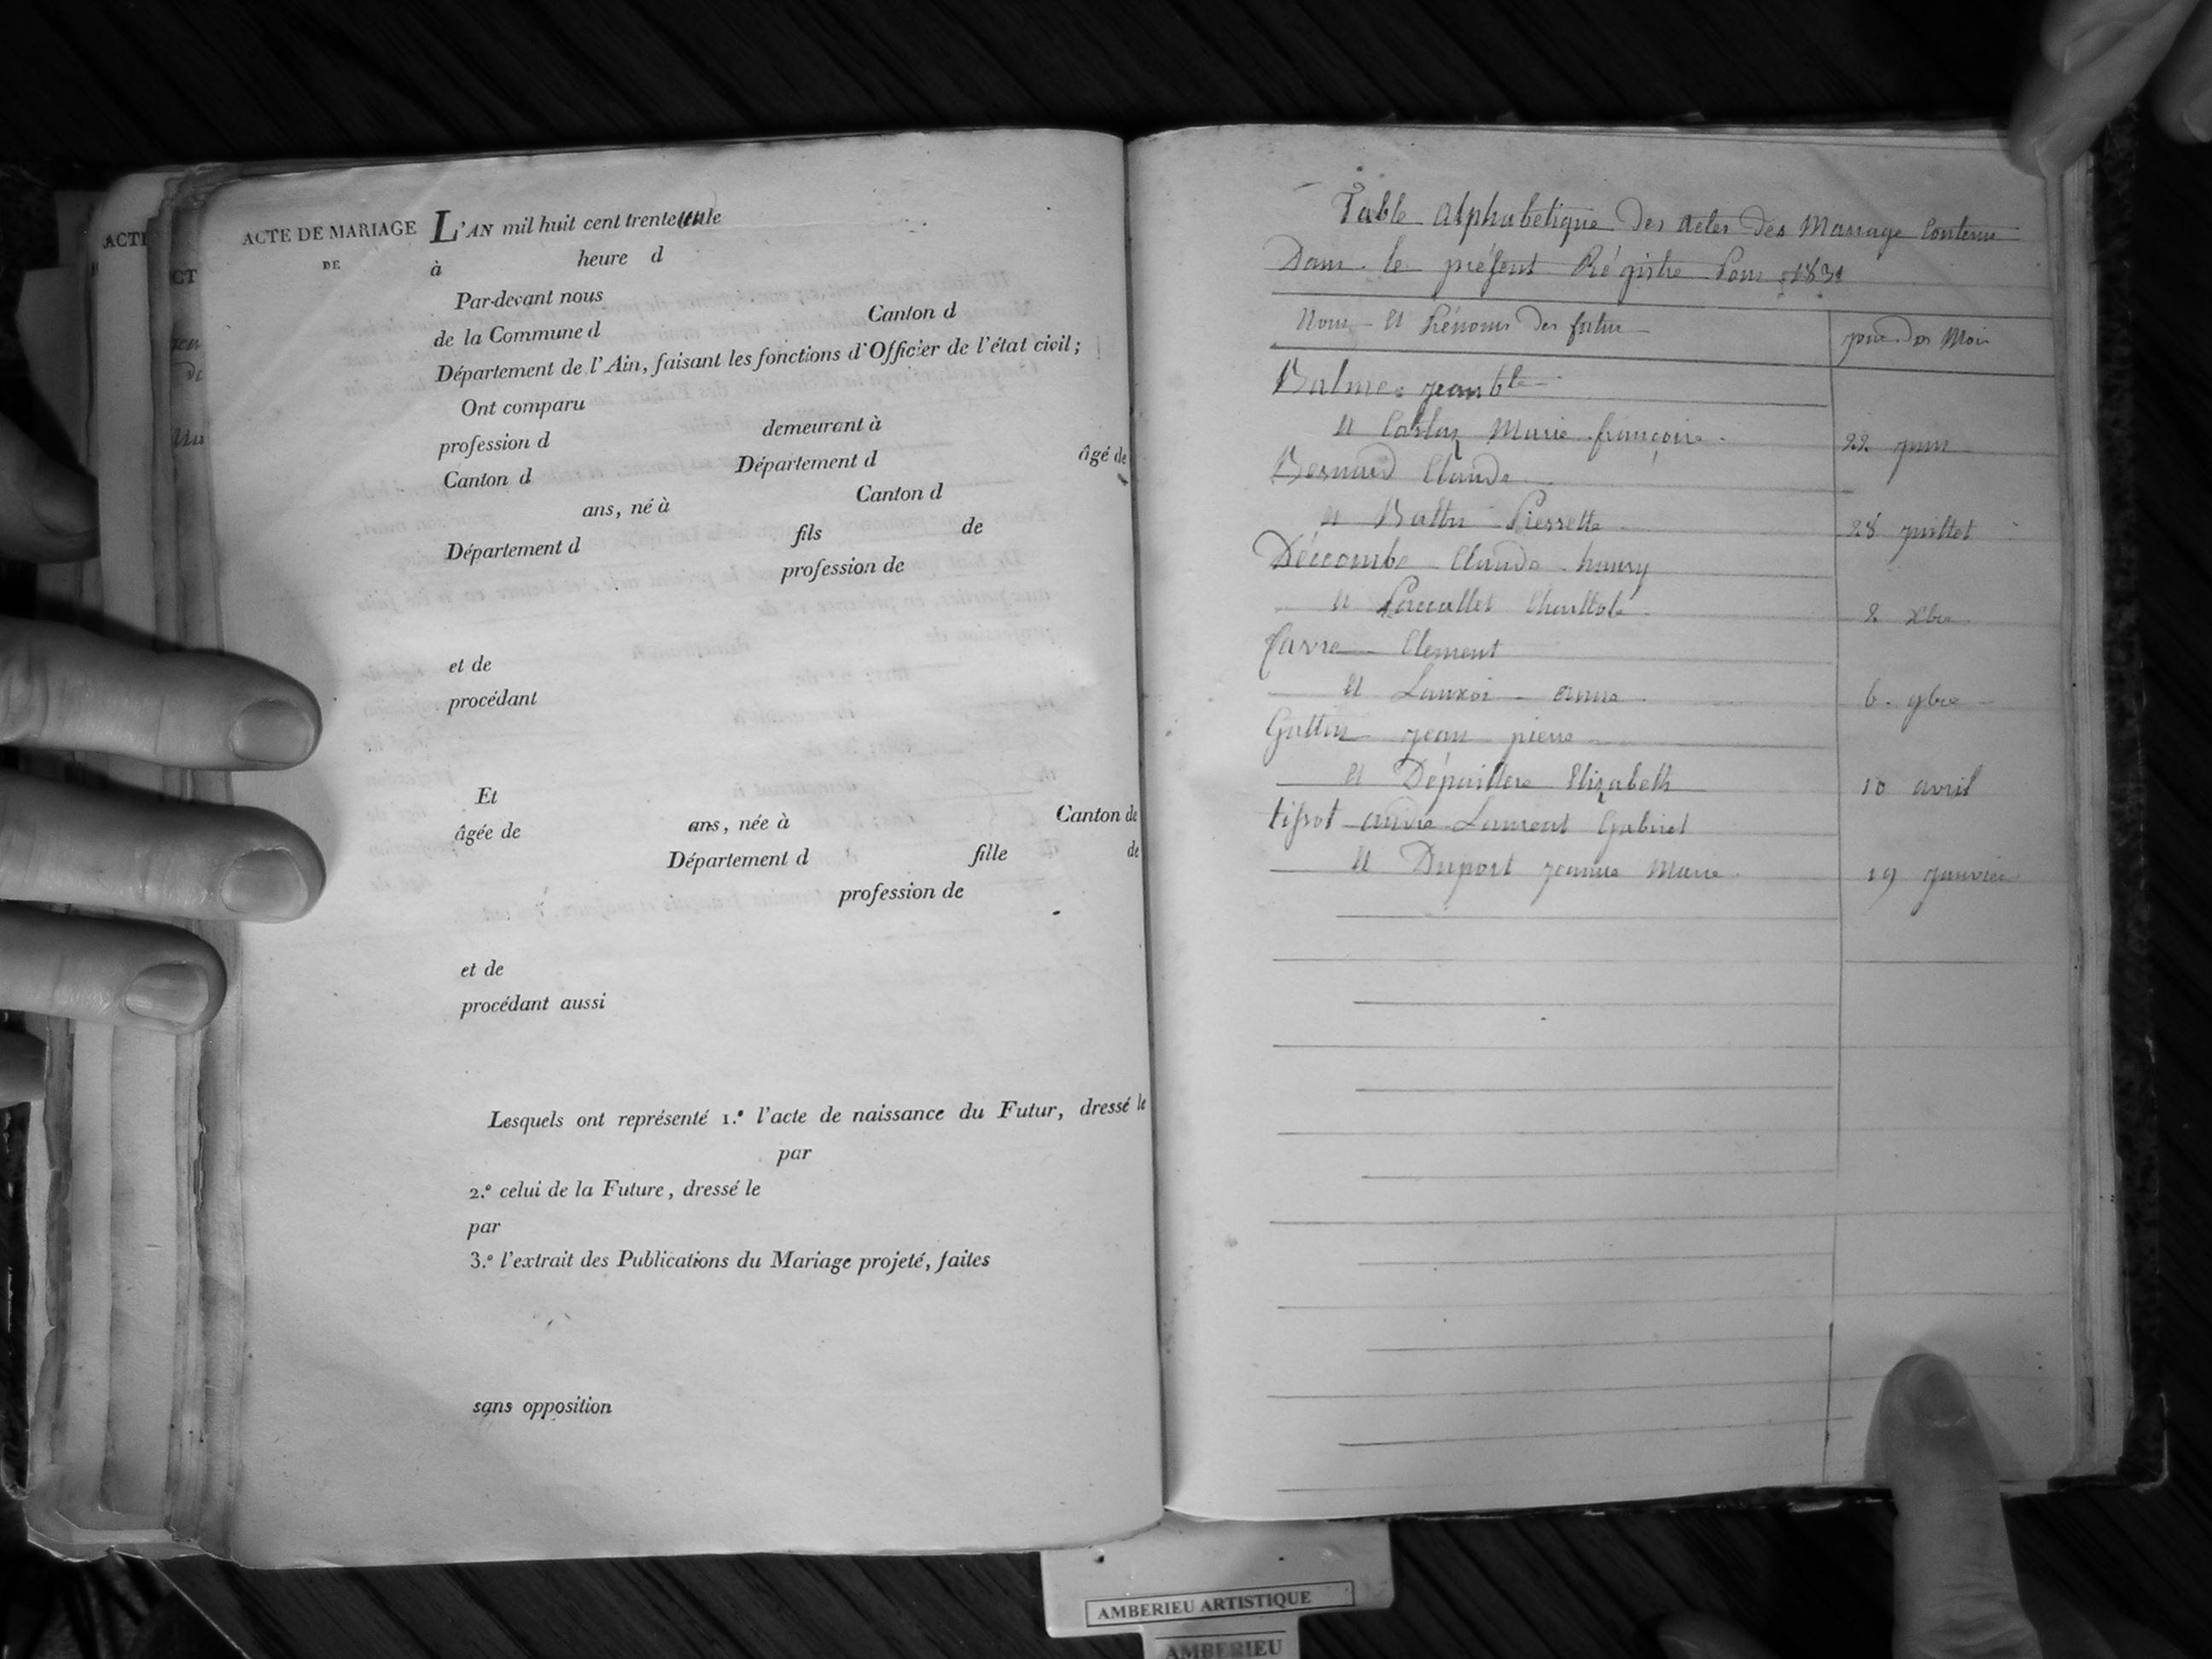 ACTE DE MARIAGE
DE
L'AN mil huit cent trente
à heure d
Par-devant nous
de la Commune d Canton d
Département de l'Ain, faisant les fonctions d'Officier de l'état civil;
Ont comparu
profession d demeurant à
Canton d Département d âgé de
ans, né à Canton d
Département d fils de
profession de
et de
procédant
Et
âgée de ans, née à Canton de
Département d fille de
profession de
et de
procédant aussi
Lesquels ont représenté 1.° l'acte de naissance du Futur, dressé le
par
2.° celui de la Future, dressé le
par
3.° l'extrait des Publications du Mariage projeté, faites
sans opposition
Table Alphabetique Des Actes Des Mariage Contenu
Dans le présent Régistre Pour 1831
Nom et Prénoms Des futur
jour Des Mois
Balme jean bte
et Marie françoise 22 juin
Bernard Claude
et Pierrette 28 juillet
Déccombe Claude henry
et 8 Xbre
favre Clement
et anne 6 9bre
Guttin jean pierre
et Elizabeth 10 avril
tissot andre Laurent Gabriel
et Duport jeanne Marie 19 janvier
AMBERIEU ARTISTIQUE
AMBERIEU